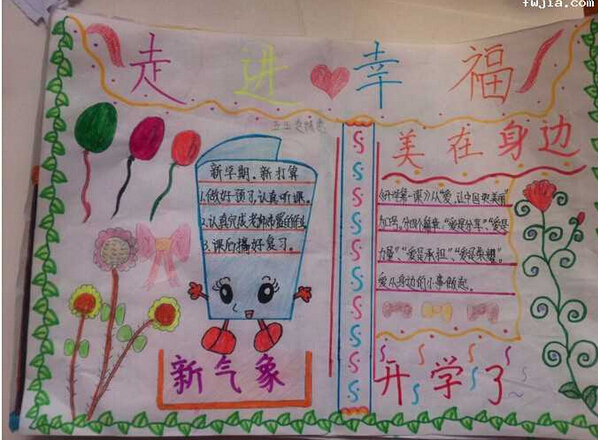 fwjia.com
走进幸福
美在身边
新学期、新打算
1.做好预习,认真听课。
2.认真完成老师布置的作业
3.课后搞好复习。
《开学第一课》以“爱,让中国更美丽”
为口号,分四个篇章,“爱是分享”、“爱是
力量”、“爱是承担”、“爱是荣耀”。
爱从身边的小事做起。
新气象
开学了